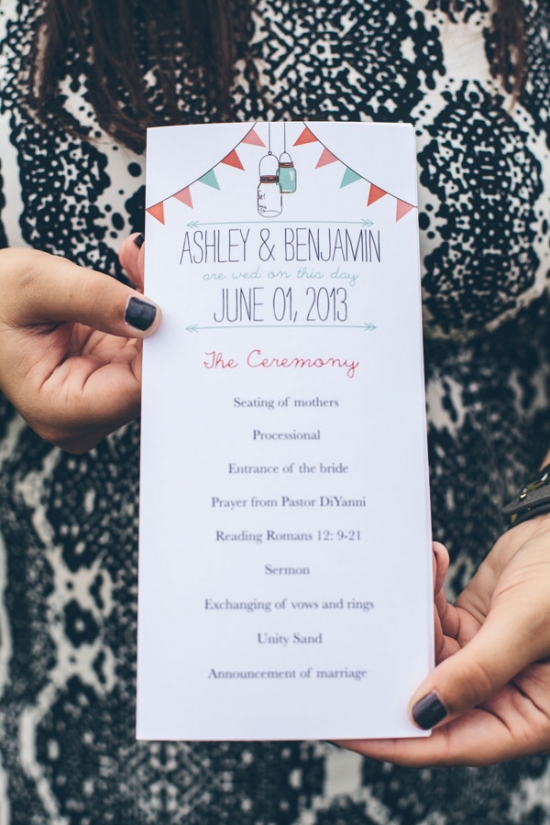 ASHLEY & BENJAMIN
are wed on this day
JUNE 01, 2013
The Ceremony
Seating of mothers
Processional
Entrance of the bride
Prayer from Pastor DiYanni
Reading Romans 12: 9-21
Sermon
Exchanging of vows and rings
Unity Sand
Announcement of marriage